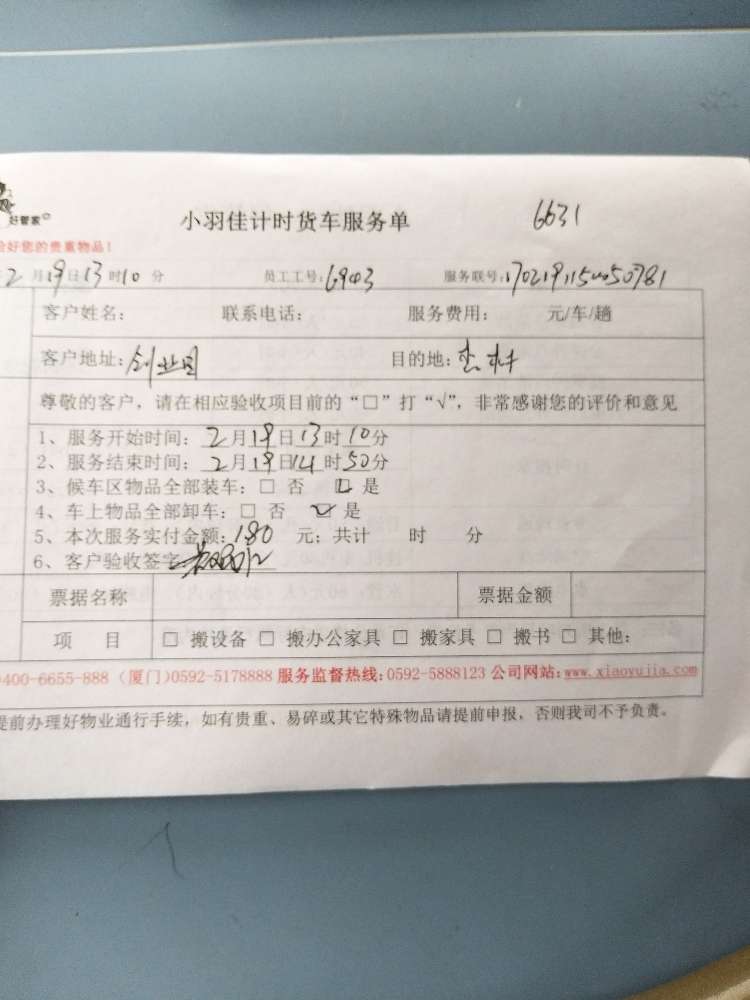 好管家
小羽佳计时货车服务单 6631
您的贵重物品！
2月19日13时10分 员工工号：6903 服务联号：
客户姓名： 联系电话： 服务费用： 元/车/趟
客户地址：创业园 目的地：杏林
尊敬的客户，请在相应验收项目前的“□”打“√”，非常感谢您的评价和意见
1、服务开始时间：2月19日13时10分
2、服务结束时间：2月19日14时50分
3、候车区物品全部装车：□ 否 ☑ 是
4、车上物品全部卸车：□ 否 ☑ 是
5、本次服务实付金额：180 元；共计 时 分
6、客户验收签字
票据名称 票据金额
项 目 □ 搬设备 □ 搬办公家具 □ 搬家具 □ 搬书 □ 其他：
400-6655-888（厦门）0592-5178888 服务监督热线：0592-5888123 公司网站：www.xiaoyujia.com
提前办理好物业通行手续，如有贵重、易碎或其它特殊物品请提前申报，否则我司不予负责。